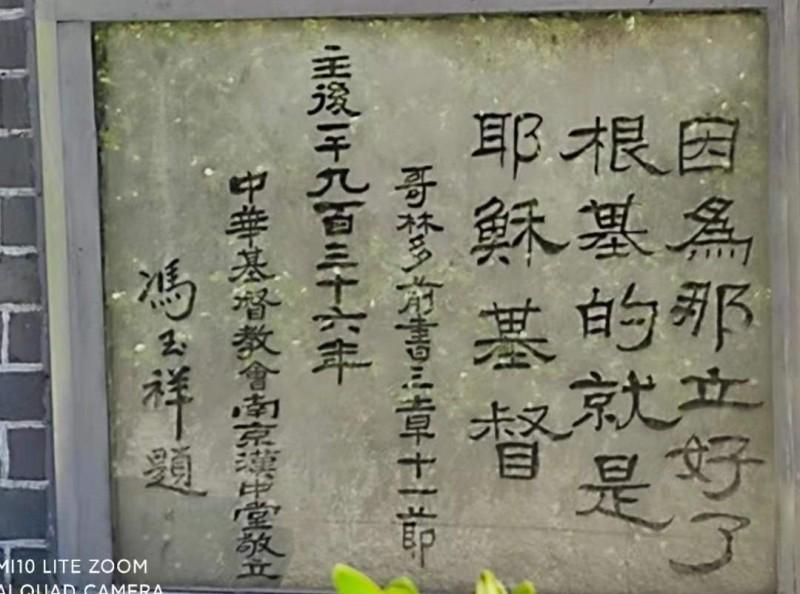 因為那立好了
根基的就是
耶穌基督
哥林多前書三章十一節
主後一千九百三十六年
中華基督教會南京漢中堂敬立
馮玉祥題
MI10 LITE ZOOM
AI QUAD CAMERA